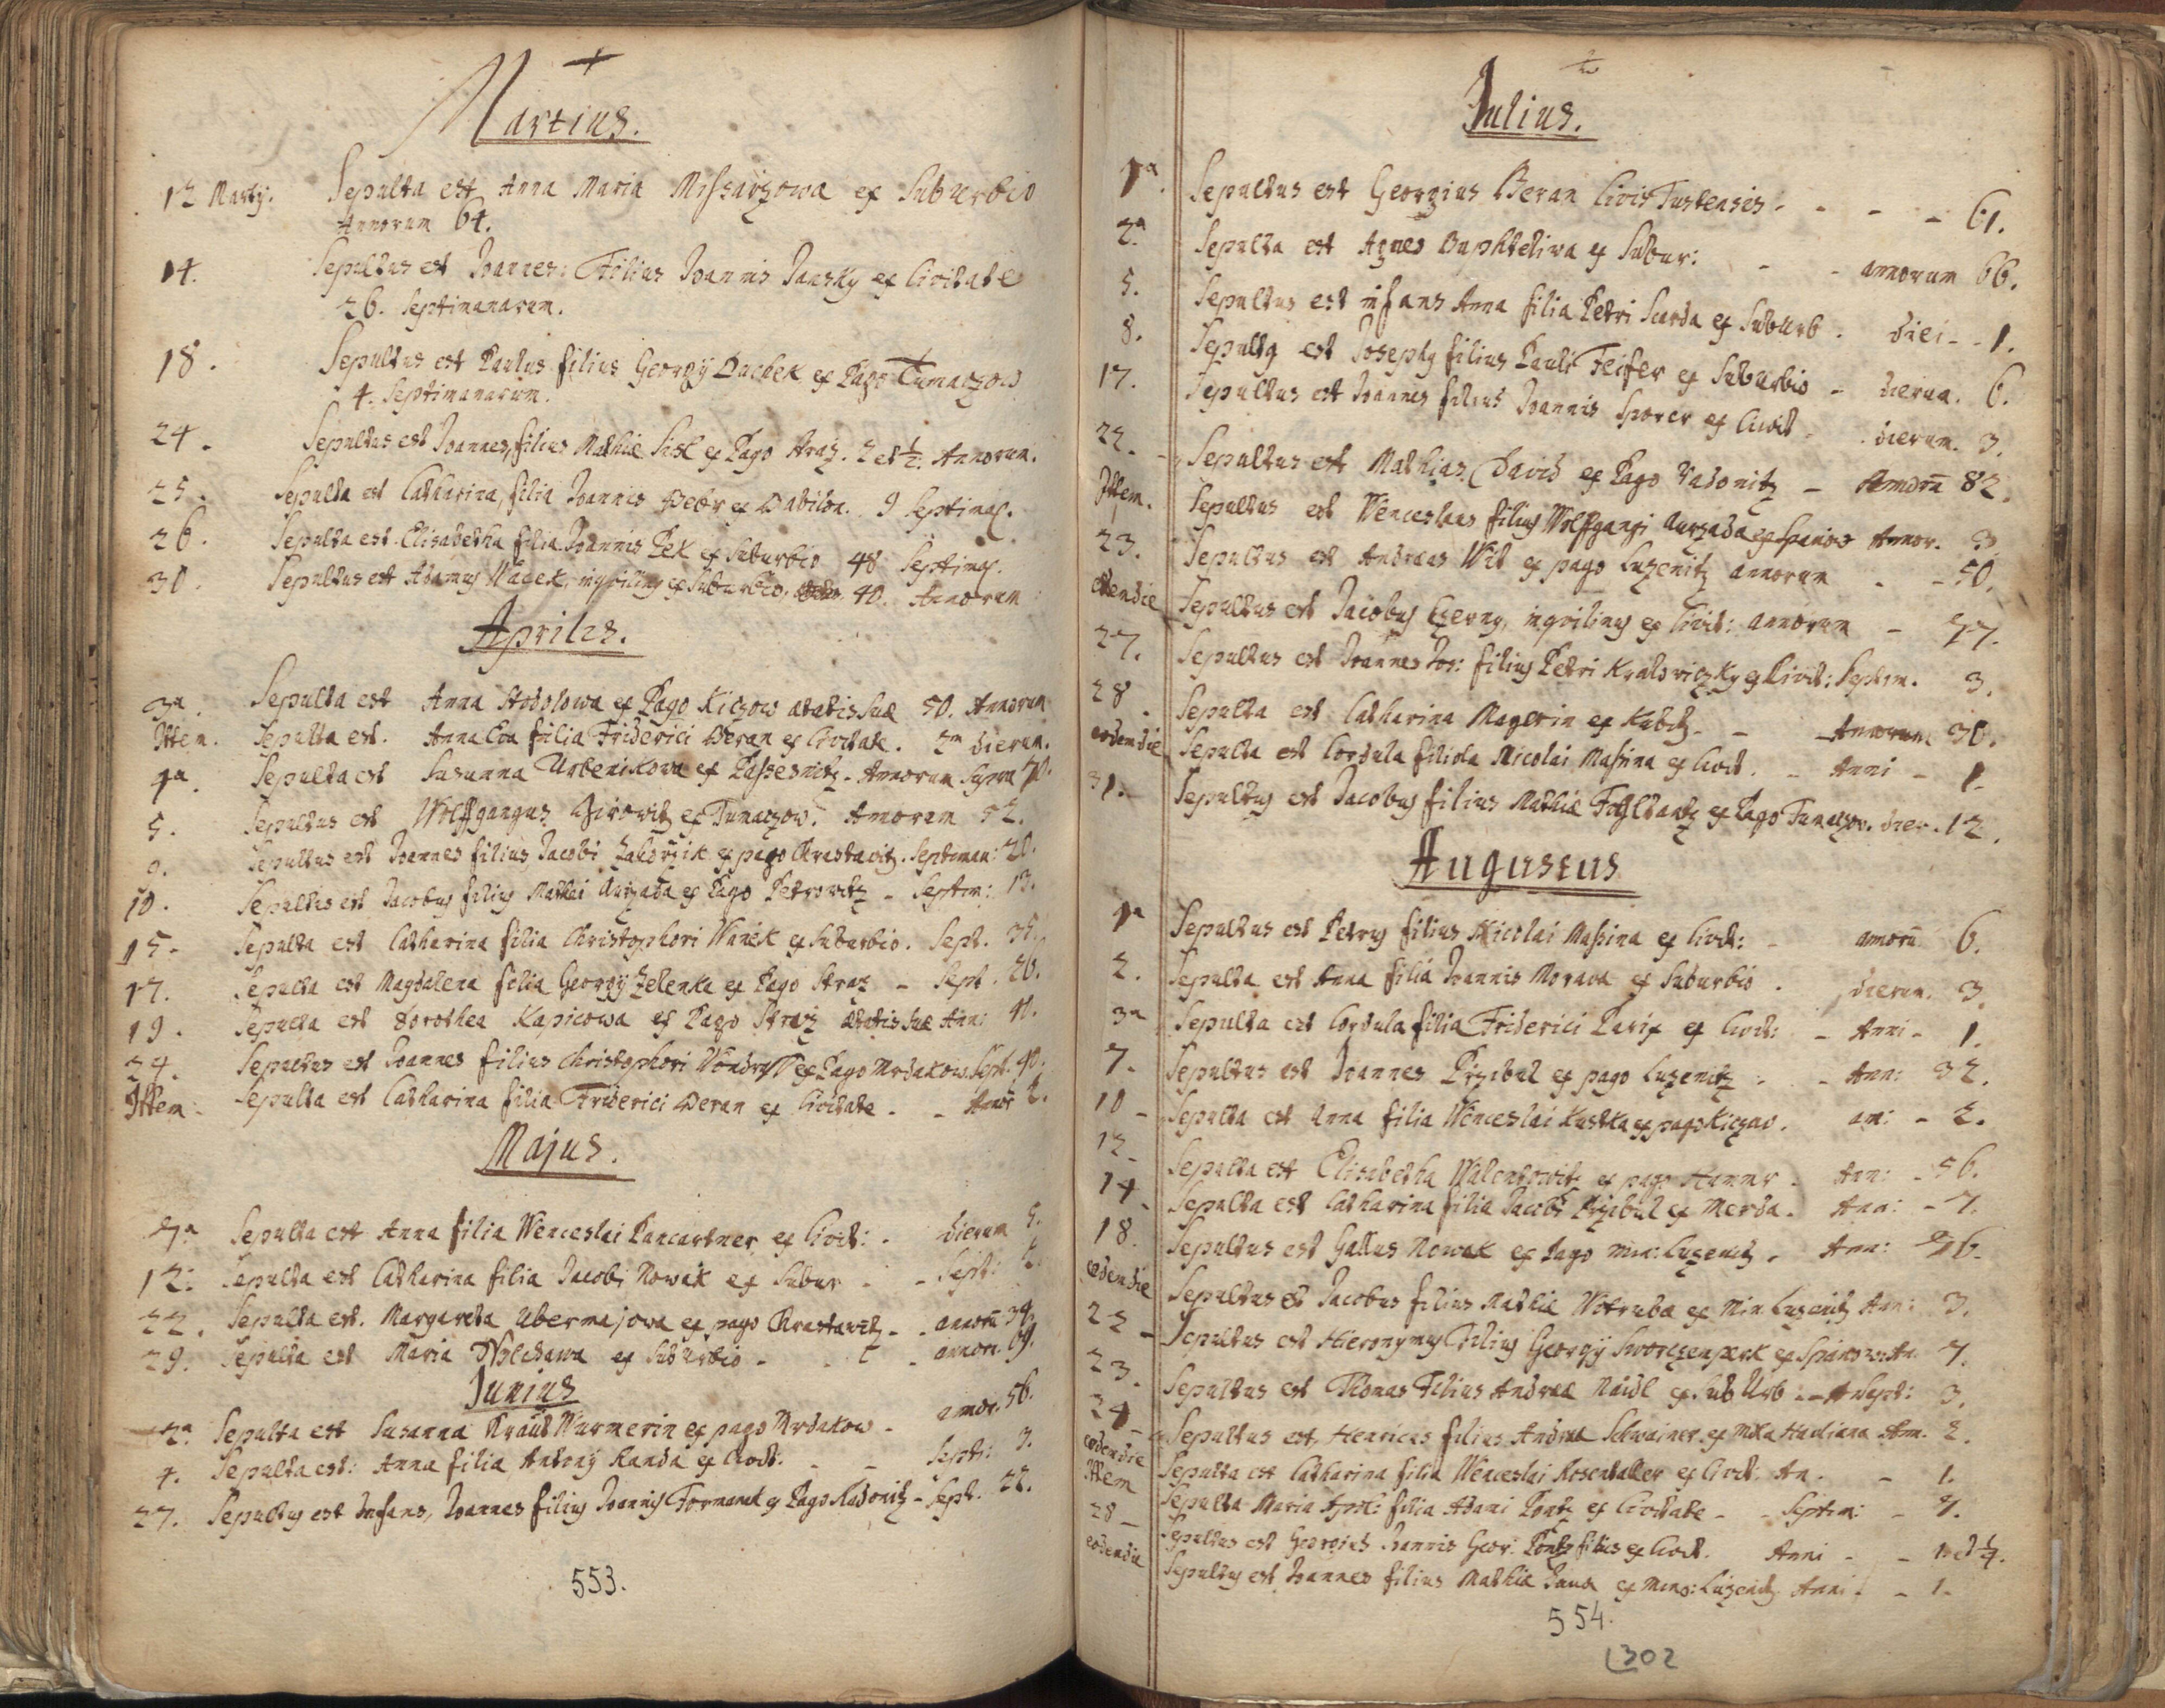 Martius.
12 Martÿ. Sepulta est Anna Maria Missarzowa ex Suburbio
Annorum 64.
14. Sepultus est Joannes: Filius Joannis Jansky ex Civitate
26. Septimanarum.
18. Sepultus est Paulus filius Georgÿ Duchek ex Pago Tumaczow
4. Septimanarum.
24. Sepultus est Joannes, filius Mathiæ Sisl ex Pago Straz. 2 et ½. Annorum.
25. Sepulta est Catharina, filia Joannis Petr ex Babilon. 9 Septimaz.
26. Sepulta est Elisabetha filia Joannis Pek ex Suburbio 48 Septimaz.
30. Sepultus est Adamus Wacek, inqvilinus ex Suburbio, 40. Annorum
Aprilis.
3a. Sepulta est Anna Stodolowa ex Pago Kiczow ætatis suæ 50. Annorum
Ittem. Sepulta est. Anna Eva filia Friderici Beran ex Civitate. 2m dierum.
4a. Sepulta est Susanna Urbenikowa ex Passesnitz. Annorum supra 70.
5. Sepultus est Wolffgangus Zirowitz ex Tumaczow. Annorum 52.
9. Sepultus est Joannes filius Jacobi Zahorzik ex pago Chrastavitz. Septiman: 28.
10. Sepultus est Jacobus filius Mathei Aurzada ex Pago Petrowitz - Septim: 13.
15. Sepulta est Catharina filia Christophori Wanek ex Suburbio. Sept. 35.
17. Sepulta est Magdalena filia Georgÿ Zelenka ex Pago Straz - Sept. 26.
19. Sepulta est Dorothea Kapicowa ex Pago Straz ætatis suæ Ann: 40.
24. Sepultus est Joannes filius Christophori ex Pago Mrdakow. Sept. 40.
Ittem. Sepulta est Catharina filia Friderici Beran ex Civitate. - Annor 2.
Majus.
7a. Sepulta est Anna filia Wenceslai Pancartner ex Civit: . dierum 5.
12. Sepulta est Catharina filia Jacobi Nowak ex Subur - - Sept: 2.
22. Sepulta est. Margareta Ubermajowa ex pago Chrastawitz - . annorū 34.
29. Sepulta est Maria Wolchawa ex Suburbio - - annoru 69.
Junius
2a. Sepulta est Susanna Wurmerin ex pago Mrdakow - annor. 56.
4. Sepulta est: Anna filia Antonÿ Randa ex Civit: - - Sept: 3.
27. Sepultus est Infans, Joannes filius Joannis Formanek ex Pago Radonitz - Sept. 22.
553.
Julius.
1a. Sepultus est Georgius Beran Civis Tustensis - - - - 61.
2a. Sepulta est Agnes ex Subur: - - annorum 66.
5. Sepultus est infans Anna filia Petri Scarda ex Suburb. diei - - 1.
8. Sepultus est Josephus filius Pauli Feifer ex Suburbio - dierum. 6.
17. Sepultus est Joannes filius Joannis Sporer ex Civit - . dierum. 3.
22. Sepultus est Mathias David ex Pago Radonitz - Annorū 82.
Ittem. Sepultus est Wenceslaus filius Wolffgangi Aurzada ex Spanow Annor. 3
23. Sepultus est Andreas Wit ex pago Luzenitz annorum - - 50.
eodem die Sepultus est Jacobus Czerny, inqvilinus ex Civit: annorum - 77.
27. Sepultus est Joannes Jos: filius Petri Kralowiczky ex Civit: Septim. 3.
28. Sepulta est Catharina Mayerin ex Kubitz - - Annorum 30.
eodem die Sepulta est Cordula filiola Nicolai Massina ex Civit. - Anni - 1.
31. Sepultus est Jacobus filius Mathiæ ex Pago Tumaczow. dier. 12.
Augustus
1a Sepultus est Petrus filius Nicolai Massina ex Civit: - annorū 6.
2. Sepulta est Anna filia Joannis Morava ex Suburbio . dierum 3.
3a Sepulta est Cordula filia Friderici Parix ex Civit: - Anni - 1.
7. Sepultus est Joannes Przibil ex pago Luzenitz - - Ann: 32.
10 - Sepulta est Anna filia Wenceslai Kustka ex pago Kiczow. an: - 2.
12 - Sepulta est Elisabetha Walentowitz ex pago Hammr - Ann: - 56.
14 - Sepulta est Catharina filia Jacobi Przibil ex Merda. Ann: - 7.
18. Sepultus est Gallus Nowak ex Pago min: Luzenitz. Ann: 76.
eodem die Sepultus est Jacobus filius Mathiæ Wotruba ex Min Luzenitz Ann: 3.
22 - Sepultus est Hieronymus Filius Georgÿ ex Spanow: An. 7.
23. Sepultus est Thomas Filius Andreæ Naidl ex Sub Urb: - Sept: 3.
24 - Sepultus est, Henricus filius Andreæ Schwainer ex Ann. 2.
eodem die Sepulta est Catharina filia Wenceslai Rosenthaller ex Civit: An. - 1.
Ittem Sepulta Maria filia Adami Pontz ex Civitate - - Septim: - 7.
28 - Sepultus est Georgius Joannis Geor: Pontz filius ex Civit. Anni - - 1 et ¼.
eodem die Sepultus est Joannes filius Mathiæ ex Mino: Luzenitz Anni - - 1.
554.
302